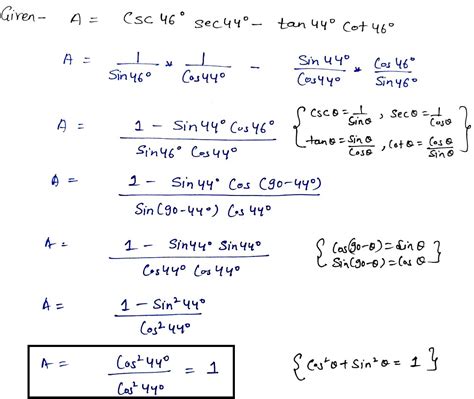 Given - A = Csc 46° sec 44° - tan 44° Cot 46°
A = 1/Sin46° * 1/Cos44° - Sin 44°/Cos44° * Cos 46°/Sin46°
A = (1 - Sin 44° Cos 46°)/(Sin 46° Cos 44°) { Cscθ = 1/Sinθ , Secθ = 1/Cosθ
tanθ = Sinθ/Cosθ , Cotθ = Cosθ/Sinθ }
A = (1 - Sin 44° Cos (90-44°))/(Sin (90-44°) Cos 44°)
A = (1 - Sin44° Sin44°)/(Cos 44° Cos 44°) { Cos(90-θ) = Sinθ
Sin(90-θ) = Cosθ }
A = (1 - Sin² 44°)/(Cos² 44°)
A = Cos² 44°/Cos² 44° = 1 { Cos²θ + Sin²θ = 1 }